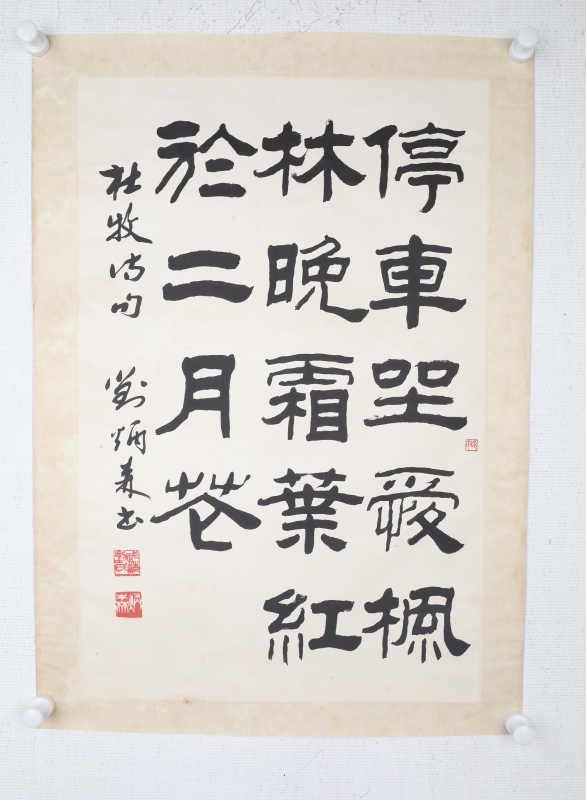 停車坐愛楓
林晚霜葉紅
於二月花
杜牧詩句 劉炳森書